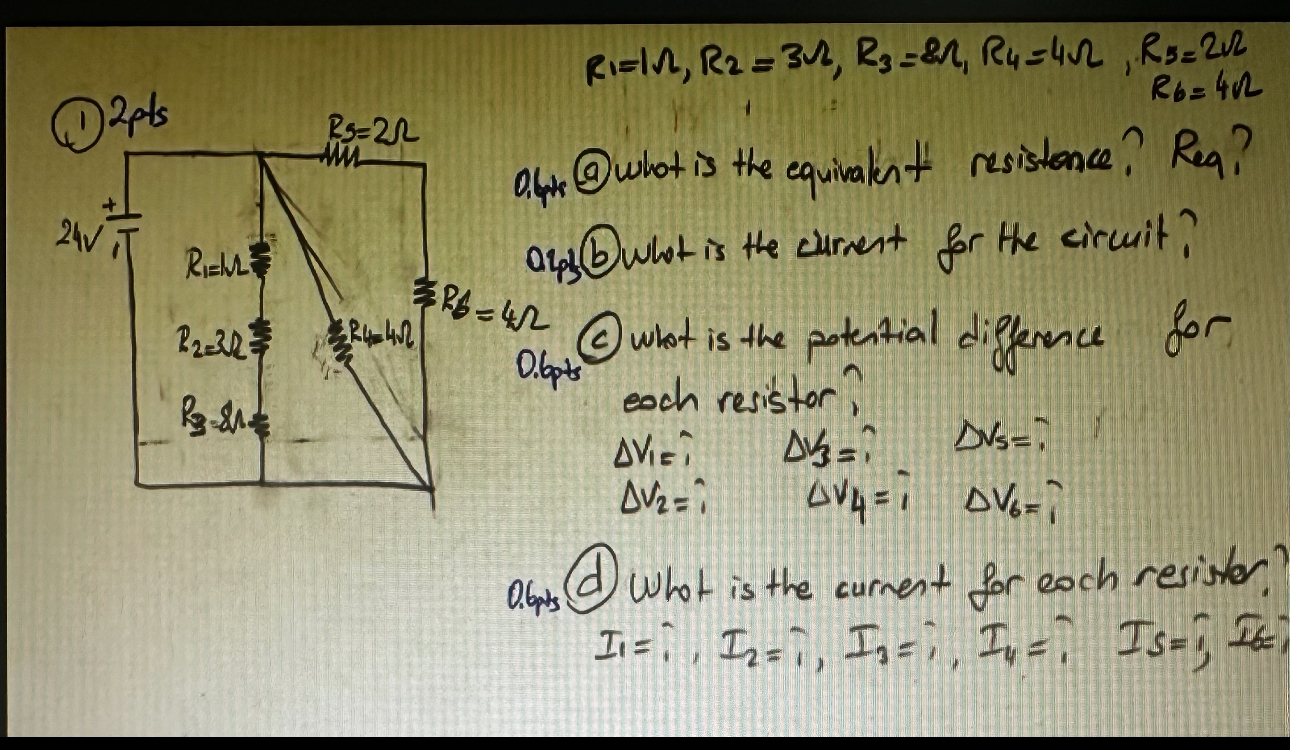 R1=1Ω, R2=3Ω, R3=8Ω, R4=4Ω, R5=2Ω
R6=4Ω
① 2pts
R5=2Ω
+
24V
R1=1Ω
R2=3Ω
R3=8Ω
R4=4Ω
R6=4Ω
ⓐ what is the equivalent resistance? Req?
ⓑ What is the current for the circuit?
0.6pts ⓒ what is the potential difference for
each resistor?
ΔV1=? ΔV3=? ΔV5=?
ΔV2=? ΔV4=? ΔV6=?
0.6pts ⓓ What is the current for each resistor?
I1=?, I2=?, I3=?, I4=? I5=?, I6=?